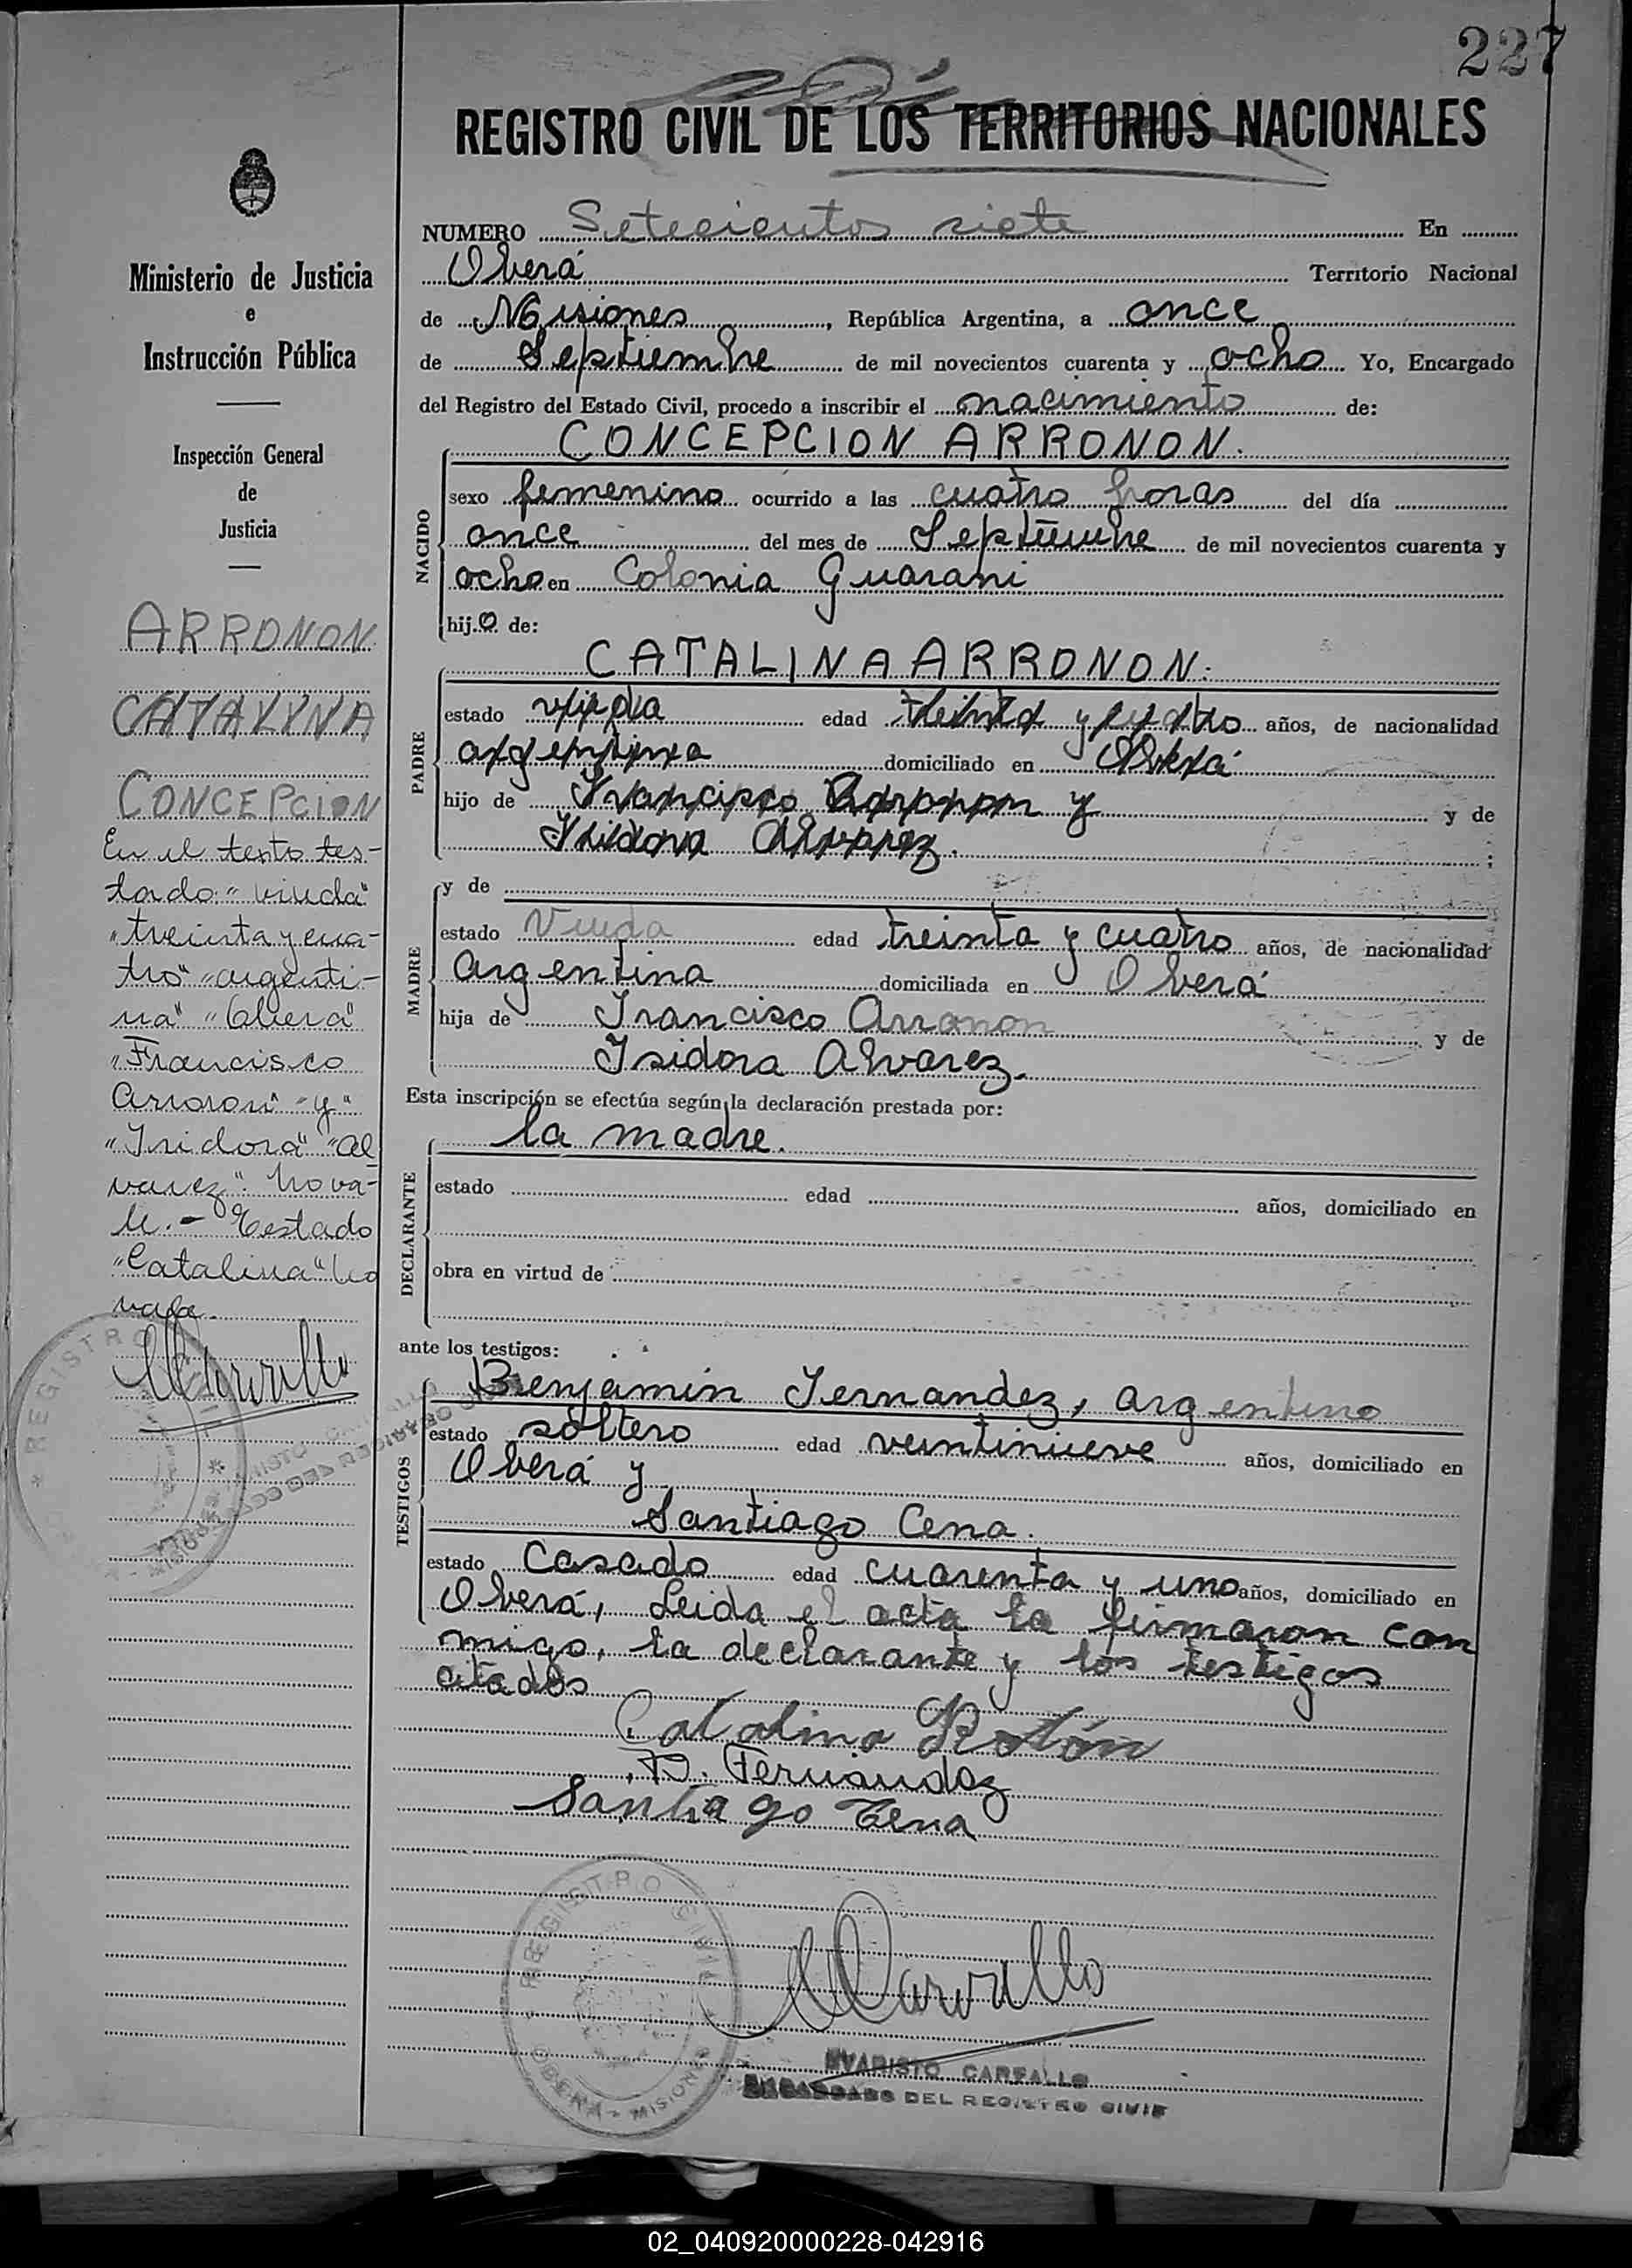 227
REGISTRO CIVIL DE LOS TERRITORIOS NACIONALES
NUMERO Setecientos siete En
Oberá Territorio Nacional
de Misiones, República Argentina, a once
de Septiembre de mil novecientos cuarenta y ocho Yo, Encargado
del Registro del Estado Civil, procedo a inscribir el nacimiento de:
CONCEPCION ARRONON.
NACIDO
sexo femenino ocurrido a las cuatro horas del día
once del mes de Septiembre de mil novecientos cuarenta y
ocho en Colonia Guarani
hija de:
CATALINA ARRONON:
PADRE
estado viuda edad treinta y cuatro años, de nacionalidad
argentina domiciliado en Oberá
hijo de Francisco Arronon y y de
Isidora Alvarez. ;
MADRE
y de
estado Viuda edad treinta y cuatro años, de nacionalidad
Argentina domiciliada en Oberá
hija de Francisco Arronon y de
Isidora Alvarez.
Esta inscripción se efectúa según la declaración prestada por:
la madre.
DECLARANTE
estado edad años, domiciliado en
obra en virtud de
ante los testigos:
Benjamin Fernandez, argentino
TESTIGOS
estado soltero edad veintinueve años, domiciliado en
Oberá y
Santiago Cena.
estado Casado edad cuarenta y uno años, domiciliado en
Oberá, Leida el acta la firmaron con
migo, la declarante y los testigos
citados
Catalina Rotón
B. Fernandez
Santiago Cena
REGISTRO CIVIL
OBERA - MISIONES
EVARISTO CARFALLO
ENCARGADO DEL REGISTRO CIVIL
Ministerio de Justicia
e
Instrucción Pública
Inspección General
de
Justicia
ARRONON
CATALINA
CONCEPCION
En el texto tes-
tado: "viuda"
"treinta y cua-
tro" "argenti-
na" "Oberá"
"Francisco
Arronon" "y"
"Isidora" "Al
varez". No va-
le. - Testado
"Catalina" No
vale.
REGISTRO
02_040920000228-042916